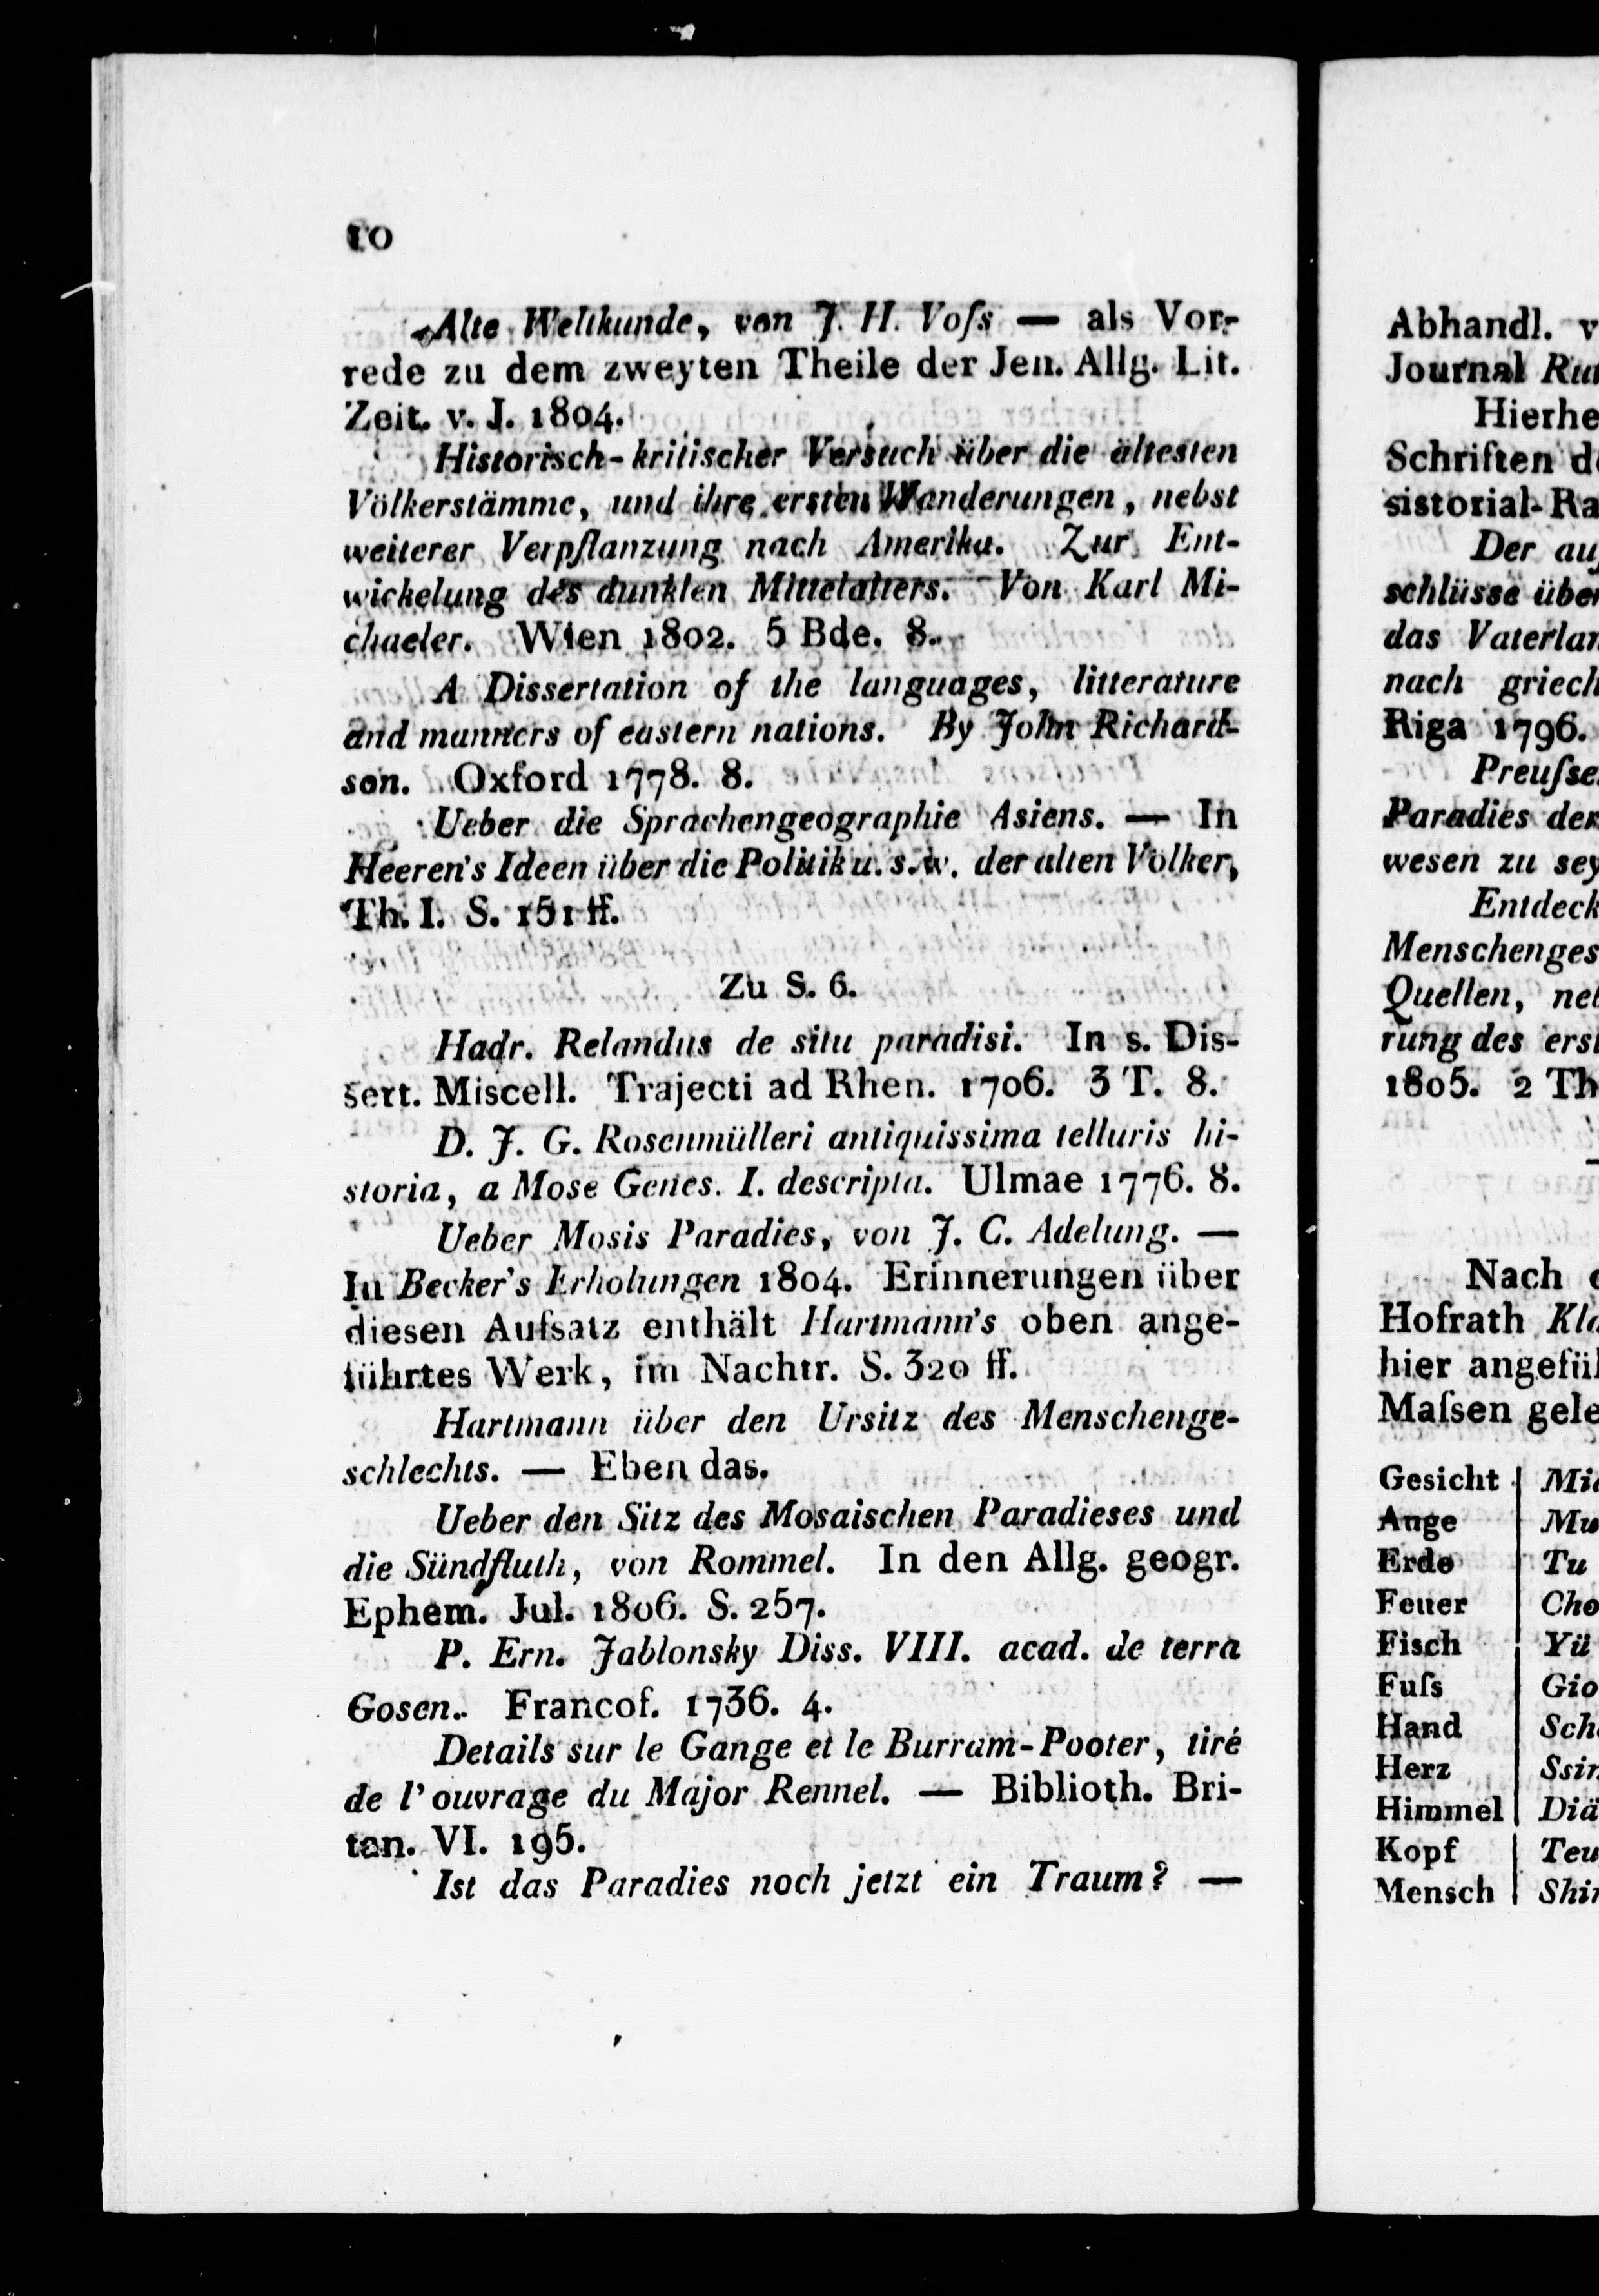 10
Alte Weltkunde, von J. H. Voſs — als Vor-
rede zu dem zweyten Theile der Jen. Allg. Lit.
Zeit. v. J. 1804.
Historisch-kritischer Versuch über die ältesten
Völkerstämme, und ihre ersten Wanderungen, nebst
weiterer Verpflanzung nach Amerika. Zur Ent-
wickelung des dunklen Mittelalters. Von Karl Mi-
chaeler. Wien 1802. 5 Bde. 8.
A Dissertation of the languages, litterature
and manners of eastern nations. By John Richard-
son. Oxford 1778. 8.
Ueber die Sprachengeographie Asiens. — In
Heeren's Ideen über die Politik u. s. w. der alten Völker,
Th. I. S. 151 ff.
Zu S. 6.
Hadr. Relandus de situ paradisi. In s. Dis-
sert. Miscell. Trajecti ad Rhen. 1706. 3 T. 8.
D. J. G. Rosenmülleri antiquissima telluris hi-
storia, a Mose Genes. I. descripta. Ulmae 1776. 8.
Ueber Mosis Paradies, von J. C. Adelung. —
In Becker's Erholungen 1804. Erinnerungen über
diesen Aufsatz enthält Hartmann's oben ange-
führtes Werk, im Nachtr. S. 320 ff.
Hartmann über den Ursitz des Menschenge-
schlechts. — Eben das.
Ueber den Sitz des Mosaischen Paradieses und
die Sündfluth, von Rommel. In den Allg. geogr.
Ephem. Jul. 1806. S. 257.
P. Ern. Jablonsky Diss. VIII. acad. de terra
Gosen. Francof. 1736. 4.
Details sur le Gange et le Burram-Pooter, tiré
de l'ouvrage du Major Rennel. — Biblioth. Bri-
tan. VI. 195.
Ist das Paradies noch jetzt ein Traum? —
Abhandl. v
Journal
Hierhe
Schriften d
sistorial-Ra
Der au
schlüsse über
das Vaterlan
nach griech
Riga 1796.
Preuſse
Paradies der
wesen zu sey
Entdeck
Menschenges
Quellen, neb
rung des erst
1805. 2 Th
Nach
Hofrath Kla
hier angefüh
Maſsen gele
Gesicht Mie
Auge Mu
Erde Tu
Feuer Cho
Fisch Yü
Fuſs Gio
Hand Sch
Herz Ssin
Himmel Diä
Kopf Teu
Mensch Shin